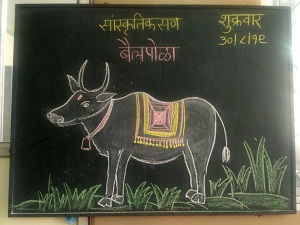 सांस्कृतिक सण
शुक्रवार
३०/८/१९
बैलपोळा